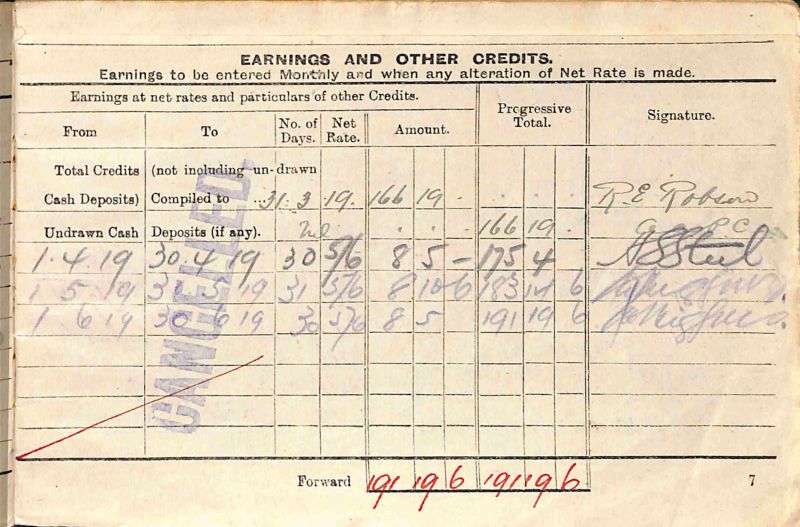 EARNINGS AND OTHER CREDITS.
Earnings to be entered Monthly and when any alteration of Net Rate is made.
Earnings at net rates and particulars of other Credits.
Progressive Total.
Signature.
From To No. of Days. Net Rate. Amount.
Total Credits (not including un-drawn
Cash Deposits) Compiled to 31. 3 19. 166 19 . R.E. Robson
Undrawn Cash Deposits (if any). Nil 166 19
1.4.19 30.4.19 30 5/6 8 5 – 175 4
1 5 19 31 5 19 31 5/6 8 10 6 183 14 6
1 6 19 30 6 19 30 5/6 8 5 191 19 6
CANCELLED.
Forward 191 19 6 191 19 6
7